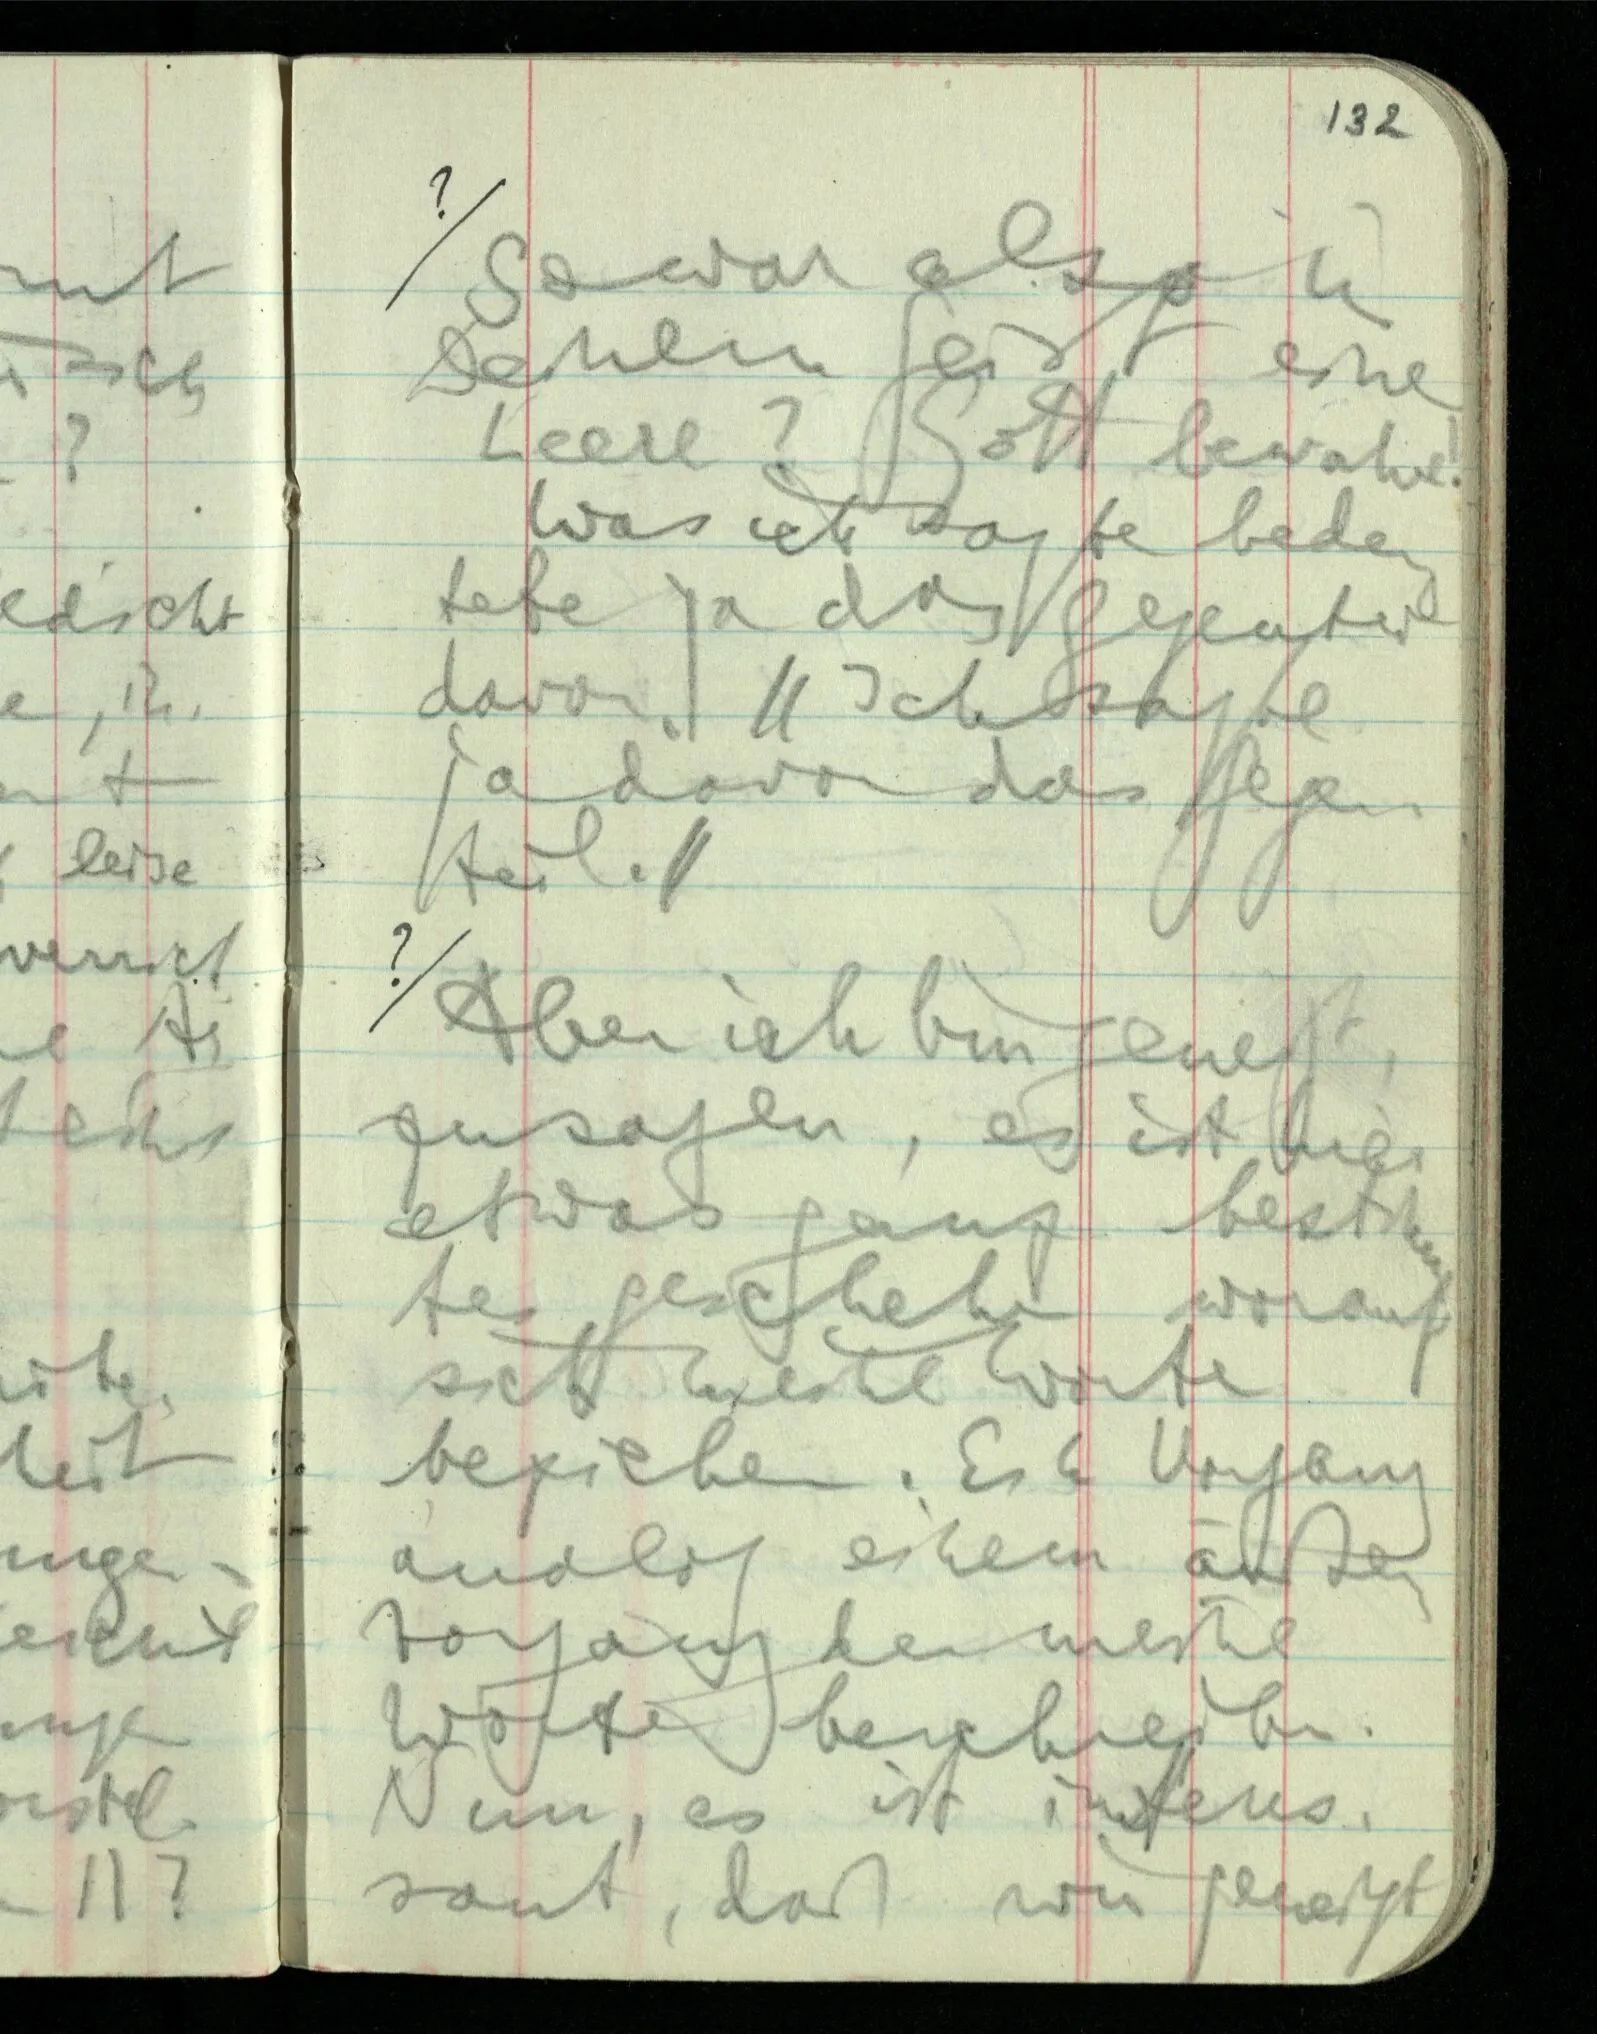 132
?/
So war also in
Deinem Geist eine
Leere? Gott bewahre!
Was ich sagte bedeu
tete ja das Gegenteil
davon.] // Ich sagte
ja davon das Gegen-
teil.//
?/
Aber ich bin geneigt,
zu sagen, es ist hier
etwas ganz bestimm
tes geschehen worauf
sich meine Worte
beziehen. Ein Vorgang
analog einem äußern
Vorgang den meine
Worte beschreiben.
Nun, es ist interes-
sant, daß wir geneigt
leise
?
//?